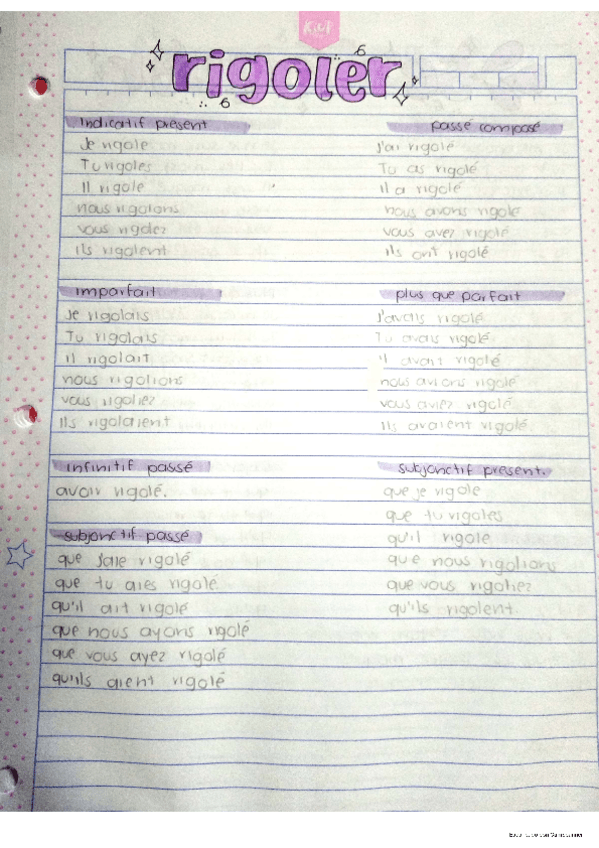 Kiut
rigoler
Indicatif présent
Je rigole
Tu rigoles
Il rigole
nous rigolons
vous rigolez
ils rigolent
passé composé
J'ai rigolé
Tu as rigolé
il a rigolé
nous avons rigolé
vous avez rigolé
ils ont rigolé
imparfait
Je rigolais
Tu rigolais
il rigolait
nous rigolions
vous rigoliez
ils rigolaient
plus que parfait
J'avais rigolé
Tu avais rigolé
il avait rigolé
nous avions rigolé
vous aviez rigolé
ils avaient rigolé.
infinitif passé
avoir rigolé.
subjonctif passé
que j'aie rigolé
que tu aies rigolé
qu'il ait rigolé
que nous ayons rigolé
que vous ayez rigolé
qu'ils aient rigolé
subjonctif present.
que je rigole
que tu rigoles
qu'il rigole
que nous rigolions
que vous rigoliez
qu'ils rigolent